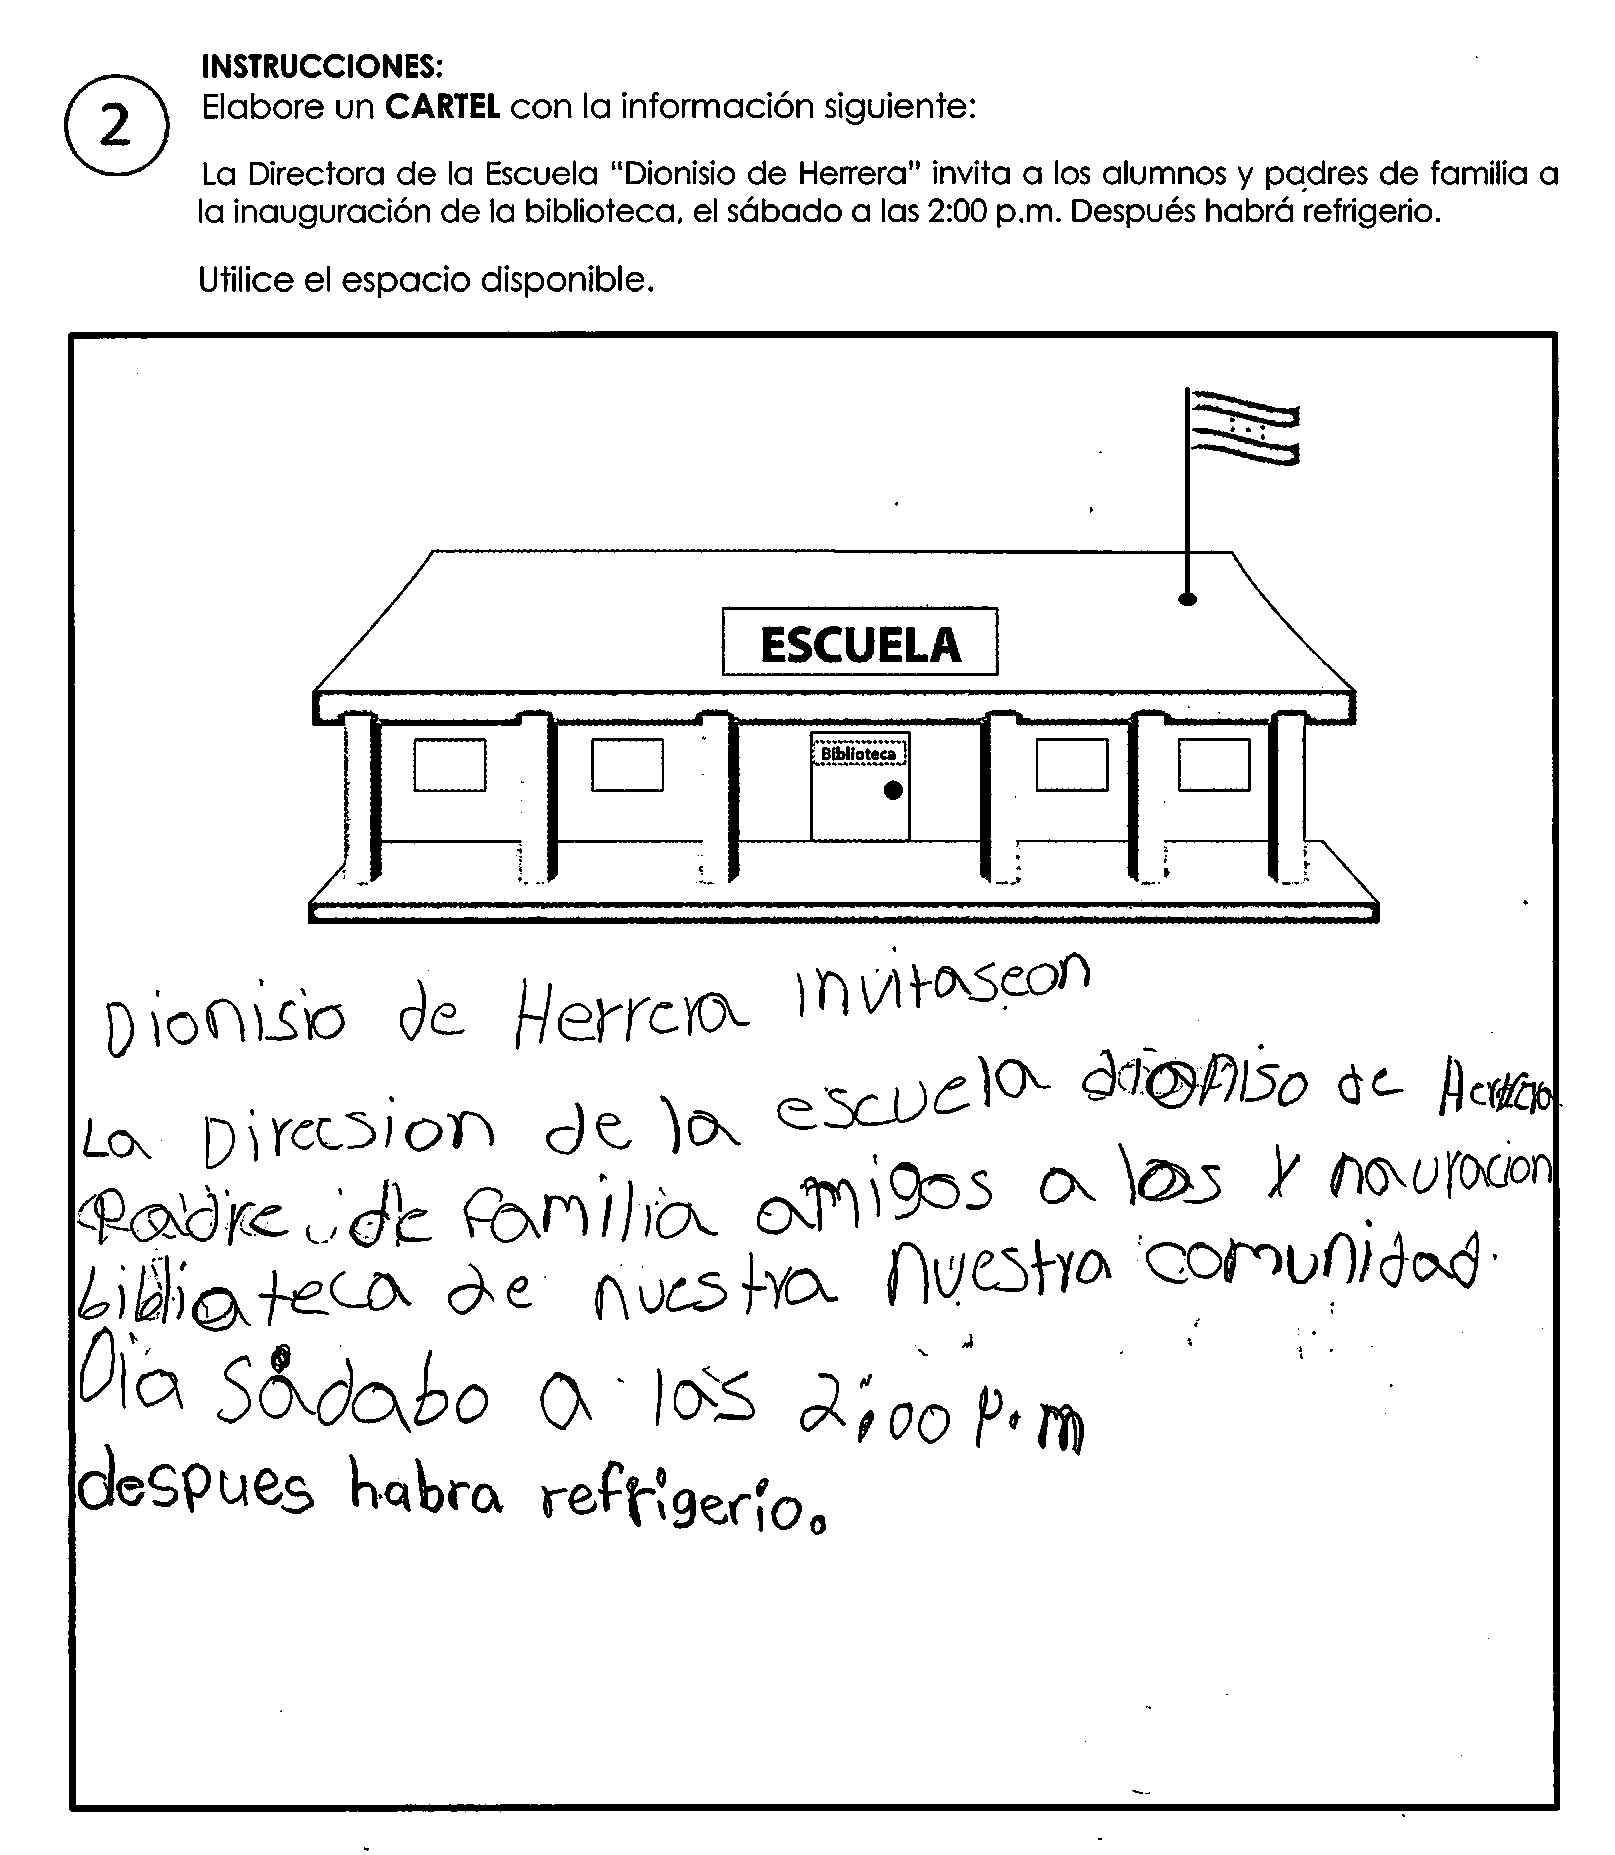 INSTRUCCIONES:
2
Elabore un CARTEL con la información siguiente:
La Directora de la Escuela "Dionisio de Herrera" invita a los alumnos y padres de familia a
la inauguración de la biblioteca, el sábado a las 2:00 p.m. Después habrá refrigerio.
Utilice el espacio disponible.
ESCUELA
Biblioteca
Dionisio de Herrera invitaseon
La Direcsion de la escuela dioniso de Herrera
Padre de familia amigos a los y nauracion
biblioteca de nuestra nuestra comunidad.
Dia sádabo a las 2:00 p.m
despues habra refrigerio.